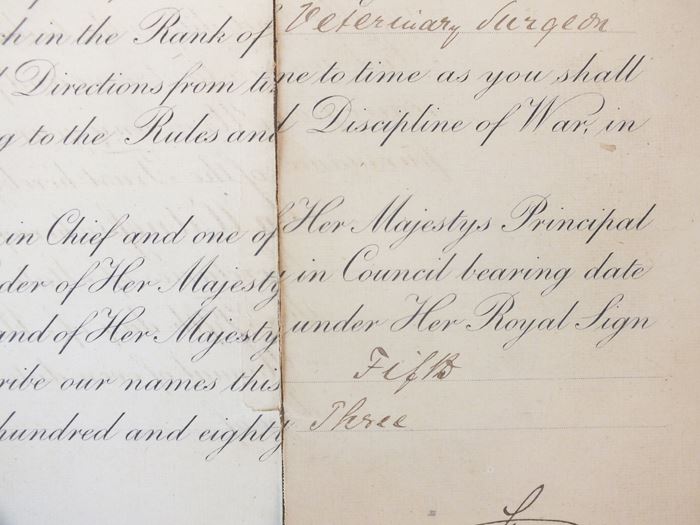 ch in the Rank of Veterinary Surgeon
Directions from time to time as you shall
g to the Rules and Discipline of War, in
in Chief and one of Her Majestys Principal
der of Her Majesty in Council bearing date
and of Her Majesty under Her Royal Sign
ribe our names this Fifth
hundred and eighty Three